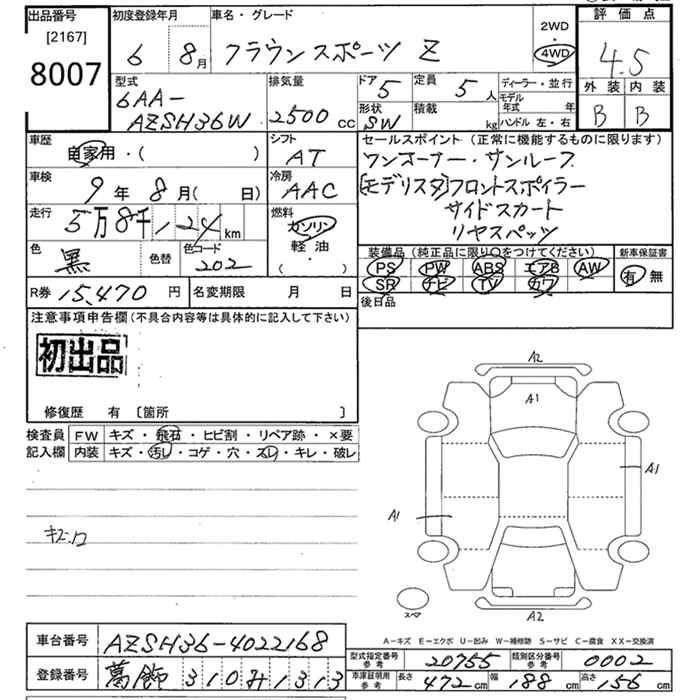 出品番号
[2167]
8007
初度登録年月
6 8月
車名・グレード
クラウンスポーツ Z
2WD
・
4WD
評価点
4.5
外装 内装
B B
型式
6AA-
AZSH36W
排気量
2500cc
ドア
5
定員
5人
形状
SW
積載
kg
ディーラー・並行
モデル年式 年
ハンドル 左・右
車歴
自家用・( )
シフト
AT
車検
9年8月( 日)
冷房
AAC
走行
5万8千124km
燃料
ガソリン
軽油
・
( )
色
黒
色替
色コード
202
セールスポイント (正常に機能するものに限ります)
ワンオーナー・サンルーフ
[モデリスタ]フロントスポイラー
サイドスカート
リヤスパッツ
装備品 (純正品に限り○をつけてください)
PS PW ABS エアB AW
SR ナビ TV カワ
新車保証書
有 無
後日品
R券 15,470円
名変期限 月 日
注意事項申告欄(不具合内容等は具体的に記入して下さい)
初出品
修復歴 有 [箇所 ]
検査員
記入欄
FW キズ・飛石・ヒビ割・リペア跡・×要
内装 キズ・汚レ・コゲ・穴・スレ・キレ・破レ
A2
A1
A1
A1
A2
スペア
A-キズ E-エクボ U-凹み W-補修跡 S-サビ C-腐食 XX-交換済
車台番号 AZSH36-4022168
登録番号 葛飾310み1313
型式指定番号
参考
20755
類別区分番号
参考
0002
車庫証明用
参考
長さ 472cm 幅 188cm 高さ 156cm